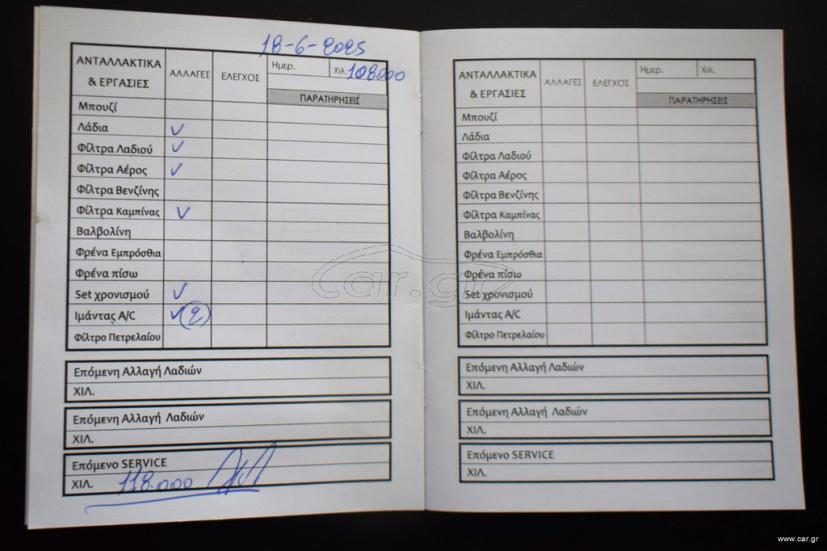 18-6-2025
ΑΝΤΑΛΛΑΚΤΙΚΑ & ΕΡΓΑΣΙΕΣ ΑΛΛΑΓΕΣ ΕΛΕΓΧΟΣ Ημερ. Χιλ. 108.000
ΠΑΡΑΤΗΡΗΣΕΙΣ
Μπουζί
Λάδια ✓
Φίλτρα Λαδιού ✓
Φίλτρα Αέρος ✓
Φίλτρα Βενζίνης
Φίλτρα Καμπίνας ✓
Βαλβολίνη
Φρένα Εμπρόσθια
Φρένα πίσω
Set χρονισμού ✓
Ιμάντας A/C ✓(2)
Φίλτρο Πετρελαίου
Επόμενη Αλλαγή Λαδιών
ΧΙΛ.
Επόμενη Αλλαγή Λαδιών
ΧΙΛ.
Επόμενο SERVICE
ΧΙΛ. 118.000
ΑΝΤΑΛΛΑΚΤΙΚΑ & ΕΡΓΑΣΙΕΣ ΑΛΛΑΓΕΣ ΕΛΕΓΧΟΣ Ημερ. Χιλ.
ΠΑΡΑΤΗΡΗΣΕΙΣ
Μπουζί
Λάδια
Φίλτρα Λαδιού
Φίλτρα Αέρος
Φίλτρα Βενζίνης
Φίλτρα Καμπίνας
Βαλβολίνη
Φρένα Εμπρόσθια
Φρένα πίσω
Set χρονισμού
Ιμάντας A/C
Φίλτρο Πετρελαίου
Επόμενη Αλλαγή Λαδιών
ΧΙΛ.
Επόμενη Αλλαγή Λαδιών
ΧΙΛ.
Επόμενο SERVICE
ΧΙΛ.
car.gr
www.car.gr